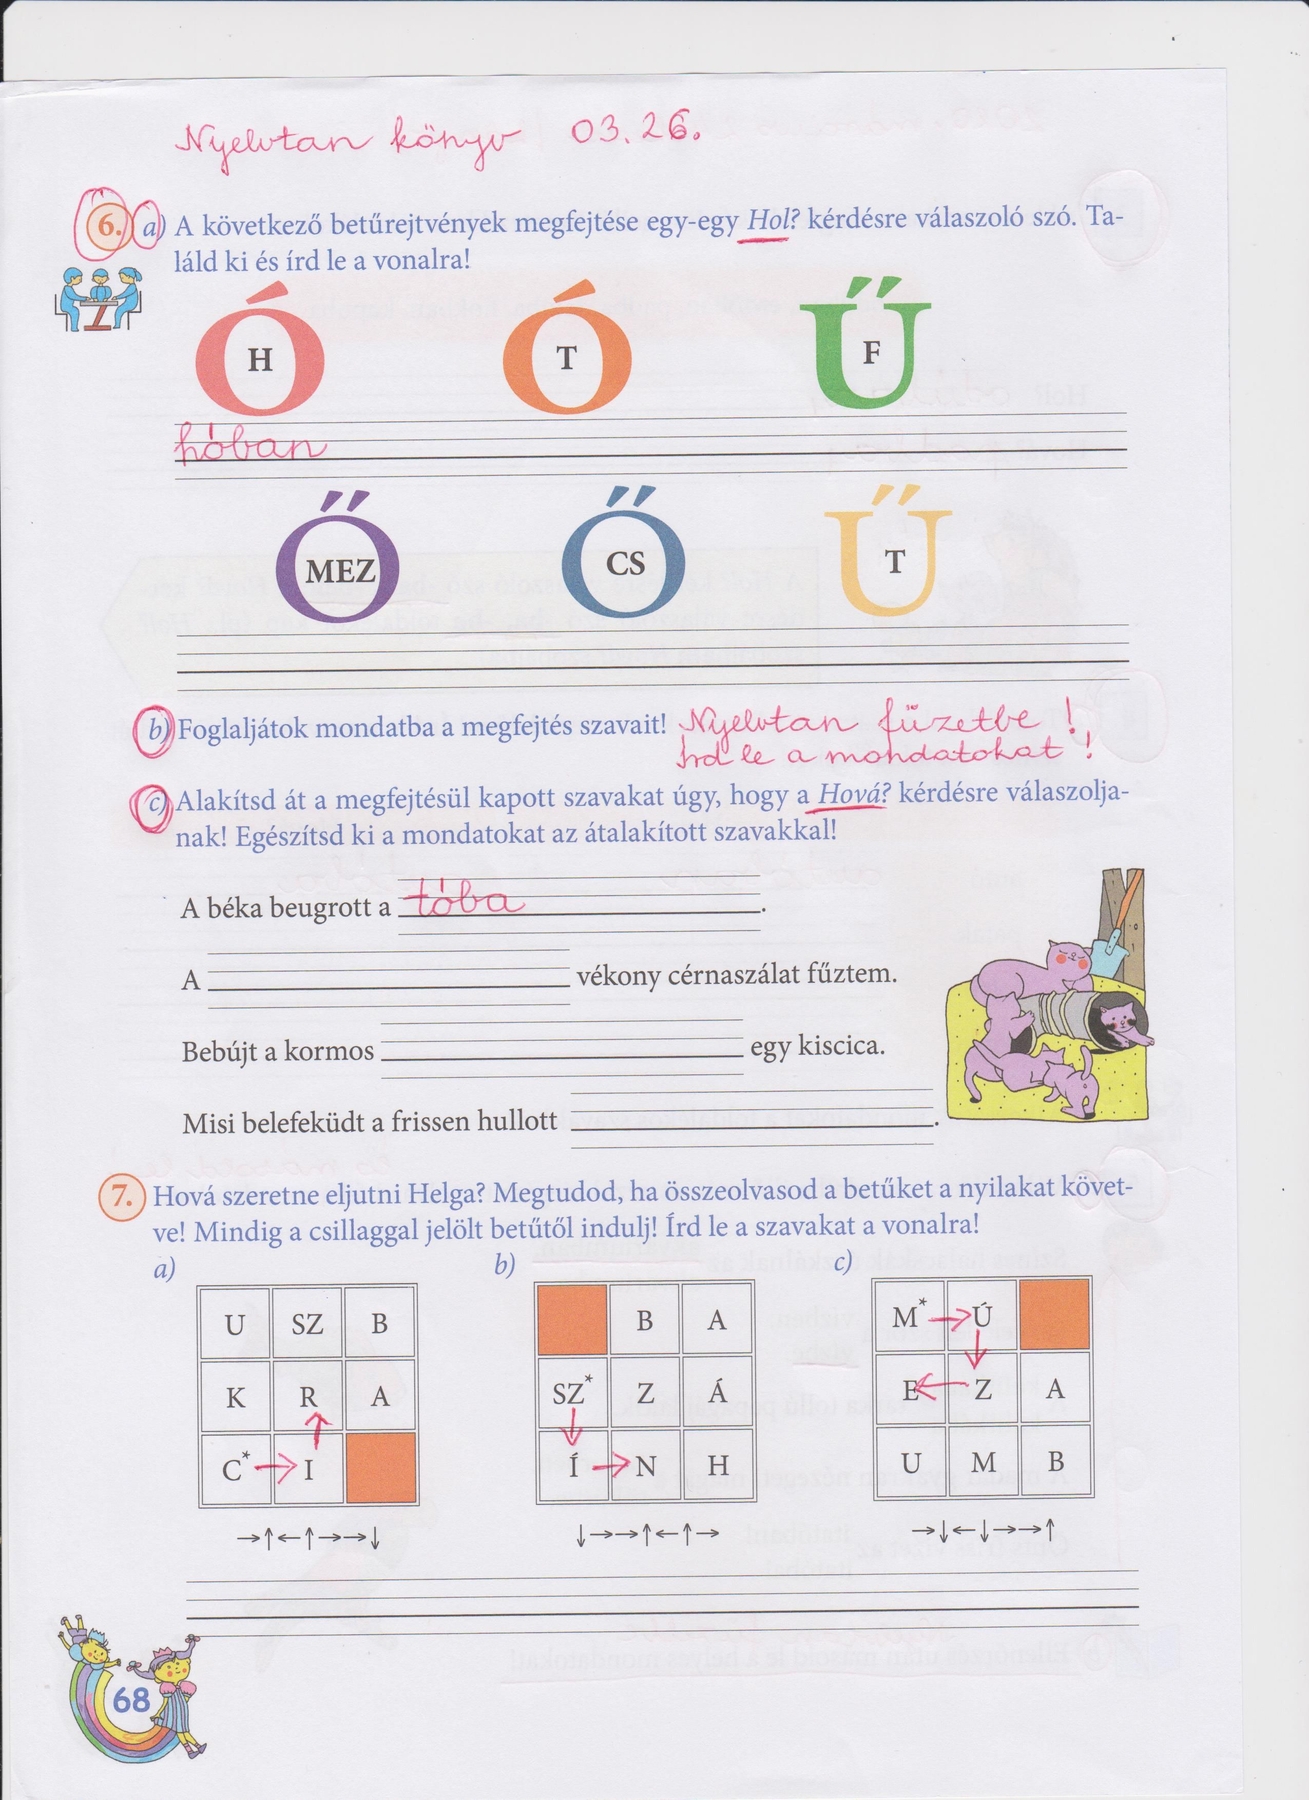 Nyelvtan könyv 03.26.
6. a) A következő betűrejtvények megfejtése egy-egy Hol? kérdésre válaszoló szó. Ta-
láld ki és írd le a vonalra!
Ó Ó Ű
H T F
hóban
Ő Ő Ű
MEZ CS T
b) Foglaljátok mondatba a megfejtés szavait! Nyelvtan füzetbe!
Írd le a mondatokat!
c) Alakítsd át a megfejtésül kapott szavakat úgy, hogy a Hová? kérdésre válaszolja-
nak! Egészítsd ki a mondatokat az átalakított szavakkal!
A béka beugrott a tóba.
A vékony cérnaszálat fűztem.
Bebújt a kormos egy kiscica.
Misi belefeküdt a frissen hullott .
7. Hová szeretne eljutni Helga? Megtudod, ha összeolvasod a betűket a nyilakat követ-
ve! Mindig a csillaggal jelölt betűtől indulj! Írd le a szavakat a vonalra!
a) b) c)
U SZ B B A M* → Ú
K R A SZ* Z Á E ← Z A
C* → I Í → N H U M B
→↑←↑→→↓ ↓→→↑←↑→ →↓←↓→→↑
68